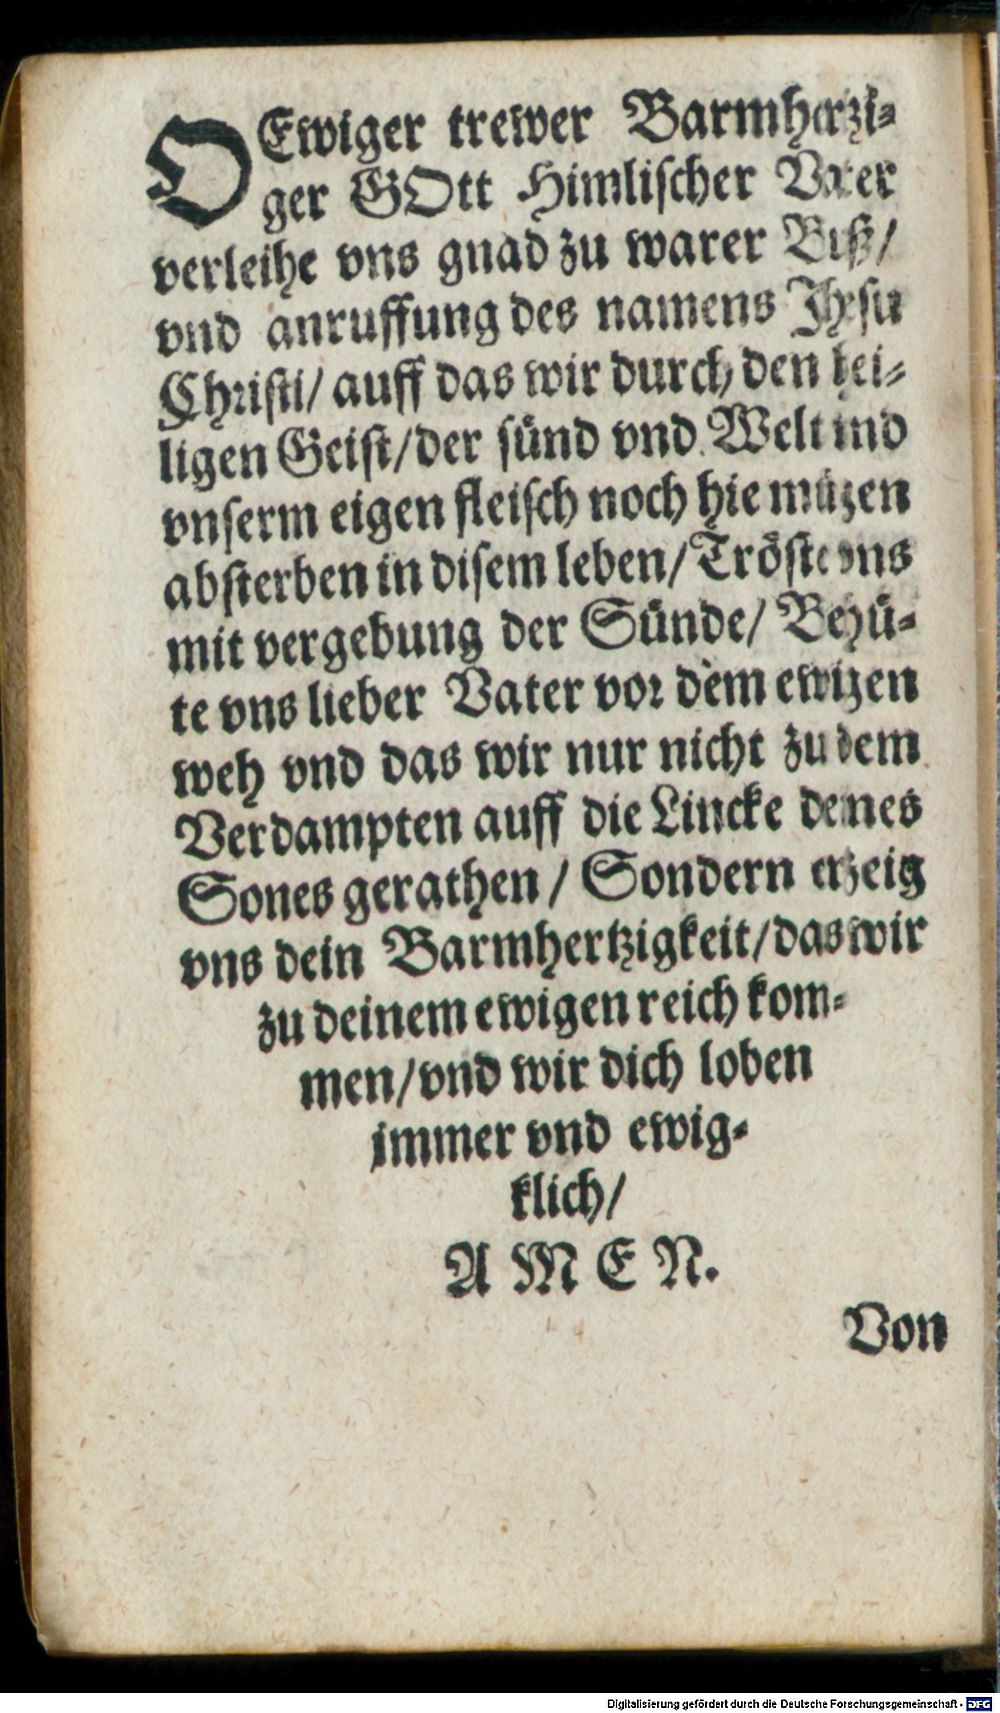 O Ewiger trewer Barmhertzi=
ger GOtt Himlischer Vater
verleihe vns gnad zu warer Buß/
vnd anruffung des namens Jhesu
Christi/ auff das wir durch den hei=
ligen Geist/ der sünd vnd Welt vnd
vnserm eigen fleisch noch hie mügen
absterben in disem leben/ Tröste vns
mit vergebung der Sünde/ Behü=
te vns lieber Vater vor dem ewigen
weh vnd das wir nur nicht zu dem
Verdampten auff die Lincke deines
Sones gerathen/ Sondern erzeig
vns dein Barmhertzigkeit/ das wir
zu deinem ewigen reich kom=
men/ vnd wir dich loben
immer vnd ewig=
klich/
A M E N.
Von
Digitalisierung gefördert durch die Deutsche Forschungsgemeinschaft - DFG